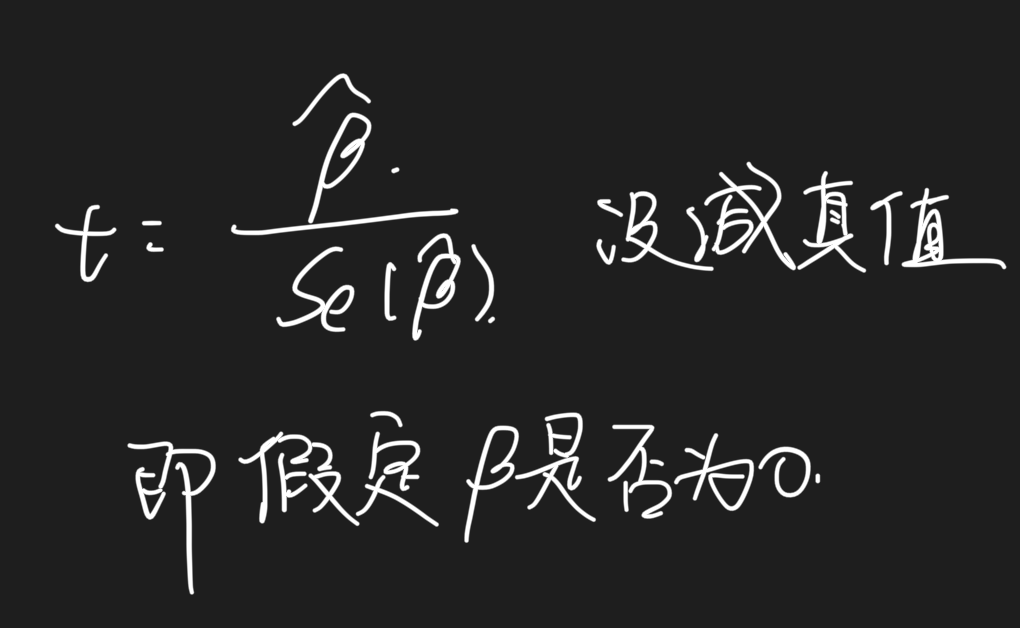 t = β̂. / Se(β̂). 没减真值
即假定β是否为0.